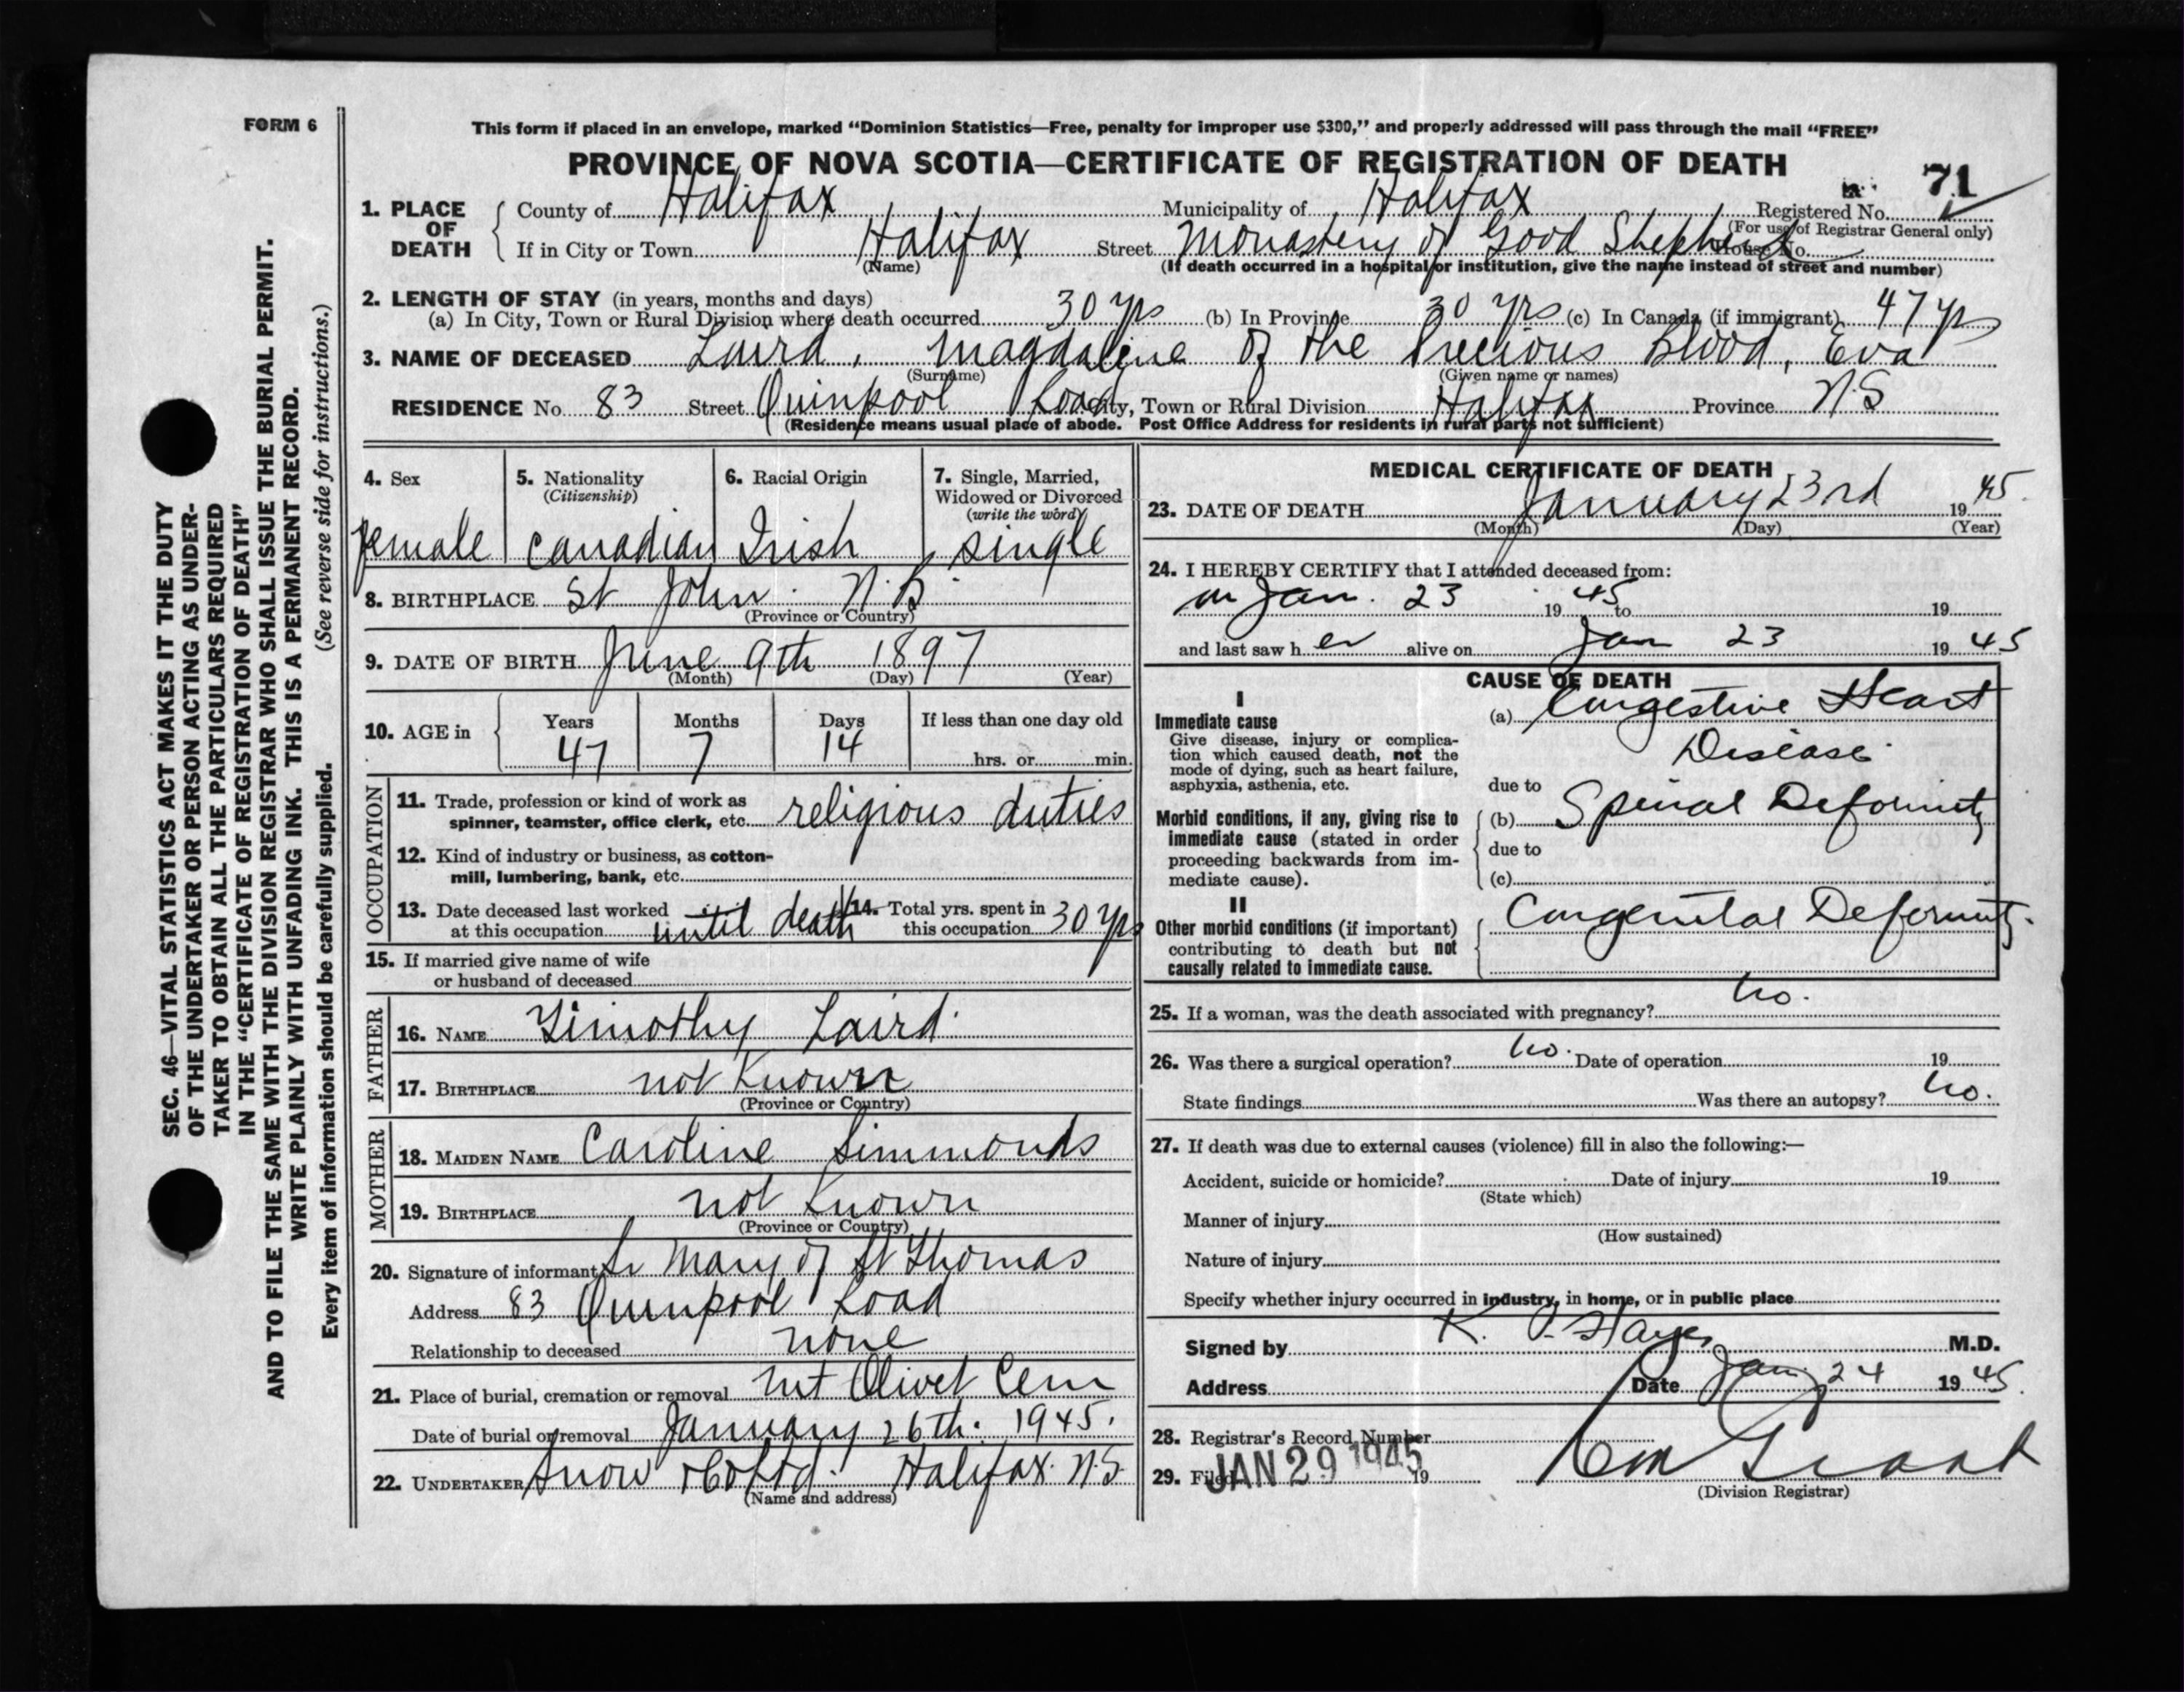 FORM 6
This form if placed in an envelope, marked “Dominion Statistics—Free, penalty for improper use $300,” and properly addressed will pass through the mail “FREE”
PROVINCE OF NOVA SCOTIA—CERTIFICATE OF REGISTRATION OF DEATH
71
1. PLACE OF DEATH
County of Halifax Municipality of Halifax Registered No.
(For use of Registrar General only)
If in City or Town Halifax Street Monastery of Good Shepherd House No.
(Name) (If death occurred in a hospital or institution, give the name instead of street and number)
2. LENGTH OF STAY (in years, months and days)
(a) In City, Town or Rural Division where death occurred 30 yrs (b) In Province 30 yrs (c) In Canada (if immigrant) 47 yrs
3. NAME OF DECEASED Laird, Magdalene of the Precious Blood, Eva
(Surname) (Given name or names)
RESIDENCE No. 83 Street Quinpool Road City, Town or Rural Division Halifax Province N.S
(Residence means usual place of abode. Post Office Address for residents in rural parts not sufficient)
4. Sex
female
5. Nationality
(Citizenship)
Canadian
6. Racial Origin
Irish
7. Single, Married,
Widowed or Divorced
(write the word)
single
8. BIRTHPLACE St John. N.B.
(Province or Country)
9. DATE OF BIRTH June 9th 1897
(Month) (Day) (Year)
10. AGE in
Years Months Days If less than one day old
47 7 14 hrs. or min.
OCCUPATION
11. Trade, profession or kind of work as
spinner, teamster, office clerk, etc. religious duties
12. Kind of industry or business, as cotton-
mill, lumbering, bank, etc.
13. Date deceased last worked
at this occupation until death
14. Total yrs. spent in
this occupation 30 yrs
15. If married give name of wife
or husband of deceased
FATHER
16. NAME Timothy Laird
17. BIRTHPLACE not Known
(Province or Country)
MOTHER
18. MAIDEN NAME Caroline Simmonds
19. BIRTHPLACE not Known
(Province or Country)
20. Signature of informant Sr Mary of St Thomas
Address 83 Quinpool Road
Relationship to deceased none
21. Place of burial, cremation or removal Mt Olivet Cem
Date of burial or removal January 26th. 1945.
22. UNDERTAKER Snow & Co Ltd. Halifax N.S.
(Name and address)
MEDICAL CERTIFICATE OF DEATH
23. DATE OF DEATH January 23rd 1945.
(Month) (Day) (Year)
24. I HEREBY CERTIFY that I attended deceased from:
on Jan. 23 1945 to 19
and last saw her alive on Jan 23 1945
CAUSE OF DEATH
I
Immediate cause
Give disease, injury or complica-
tion which caused death, not the
mode of dying, such as heart failure,
asphyxia, asthenia, etc.
(a) Congestive Heart
Disease.
due to
Morbid conditions, if any, giving rise to
immediate cause (stated in order
proceeding backwards from im-
mediate cause).
(b) Spinal Deformity
due to
(c)
II
Other morbid conditions (if important)
contributing to death but not
causally related to immediate cause.
Congenital Deformity.
25. If a woman, was the death associated with pregnancy? No.
26. Was there a surgical operation? No. Date of operation 19
State findings Was there an autopsy? No.
27. If death was due to external causes (violence) fill in also the following:—
Accident, suicide or homicide? Date of injury 19
(State which)
Manner of injury
(How sustained)
Nature of injury
Specify whether injury occurred in industry, in home, or in public place
Signed by K. P. Hayes M.D.
Address Date Jan 24 1945.
28. Registrar's Record Number
29. Filed JAN 29 1945 19
(Division Registrar)
SEC. 46—VITAL STATISTICS ACT MAKES IT THE DUTY
OF THE UNDERTAKER OR PERSON ACTING AS UNDER-
TAKER TO OBTAIN ALL THE PARTICULARS REQUIRED
IN THE “CERTIFICATE OF REGISTRATION OF DEATH”
AND TO FILE THE SAME WITH THE DIVISION REGISTRAR WHO SHALL ISSUE THE BURIAL PERMIT.
WRITE PLAINLY WITH UNFADING INK. THIS IS A PERMANENT RECORD.
Every item of information should be carefully supplied. (See reverse side for instructions.)